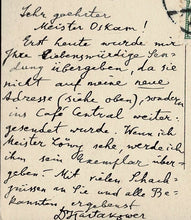 Sehr geehrter
Meister Oskam!
Erst heute wurde mir
Ihre liebenswürdige Sen-
dung übergeben, da sie
nicht auf meine neue
Adresse (siehe oben), sondern
ins Café Central weiter-
gesendet wurde. Wenn ich
Meister Löwy sehe, werde ich
ihm sein Exemplar über-
geben. Mit vielen Schach-
grüssen an Sie und alle Be-
kannten ergebenst
Dr Tartakower